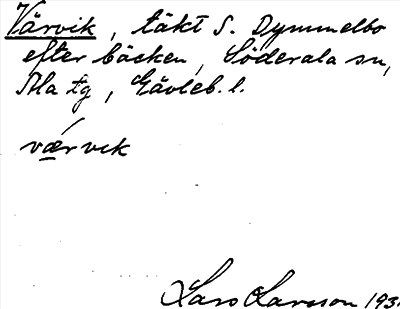 Värvik, täkt S. Dymmelbo
efter bäcken, Söderala sn,
Ala tg, Gävleb. l.
værvik
Lars Larsson 193